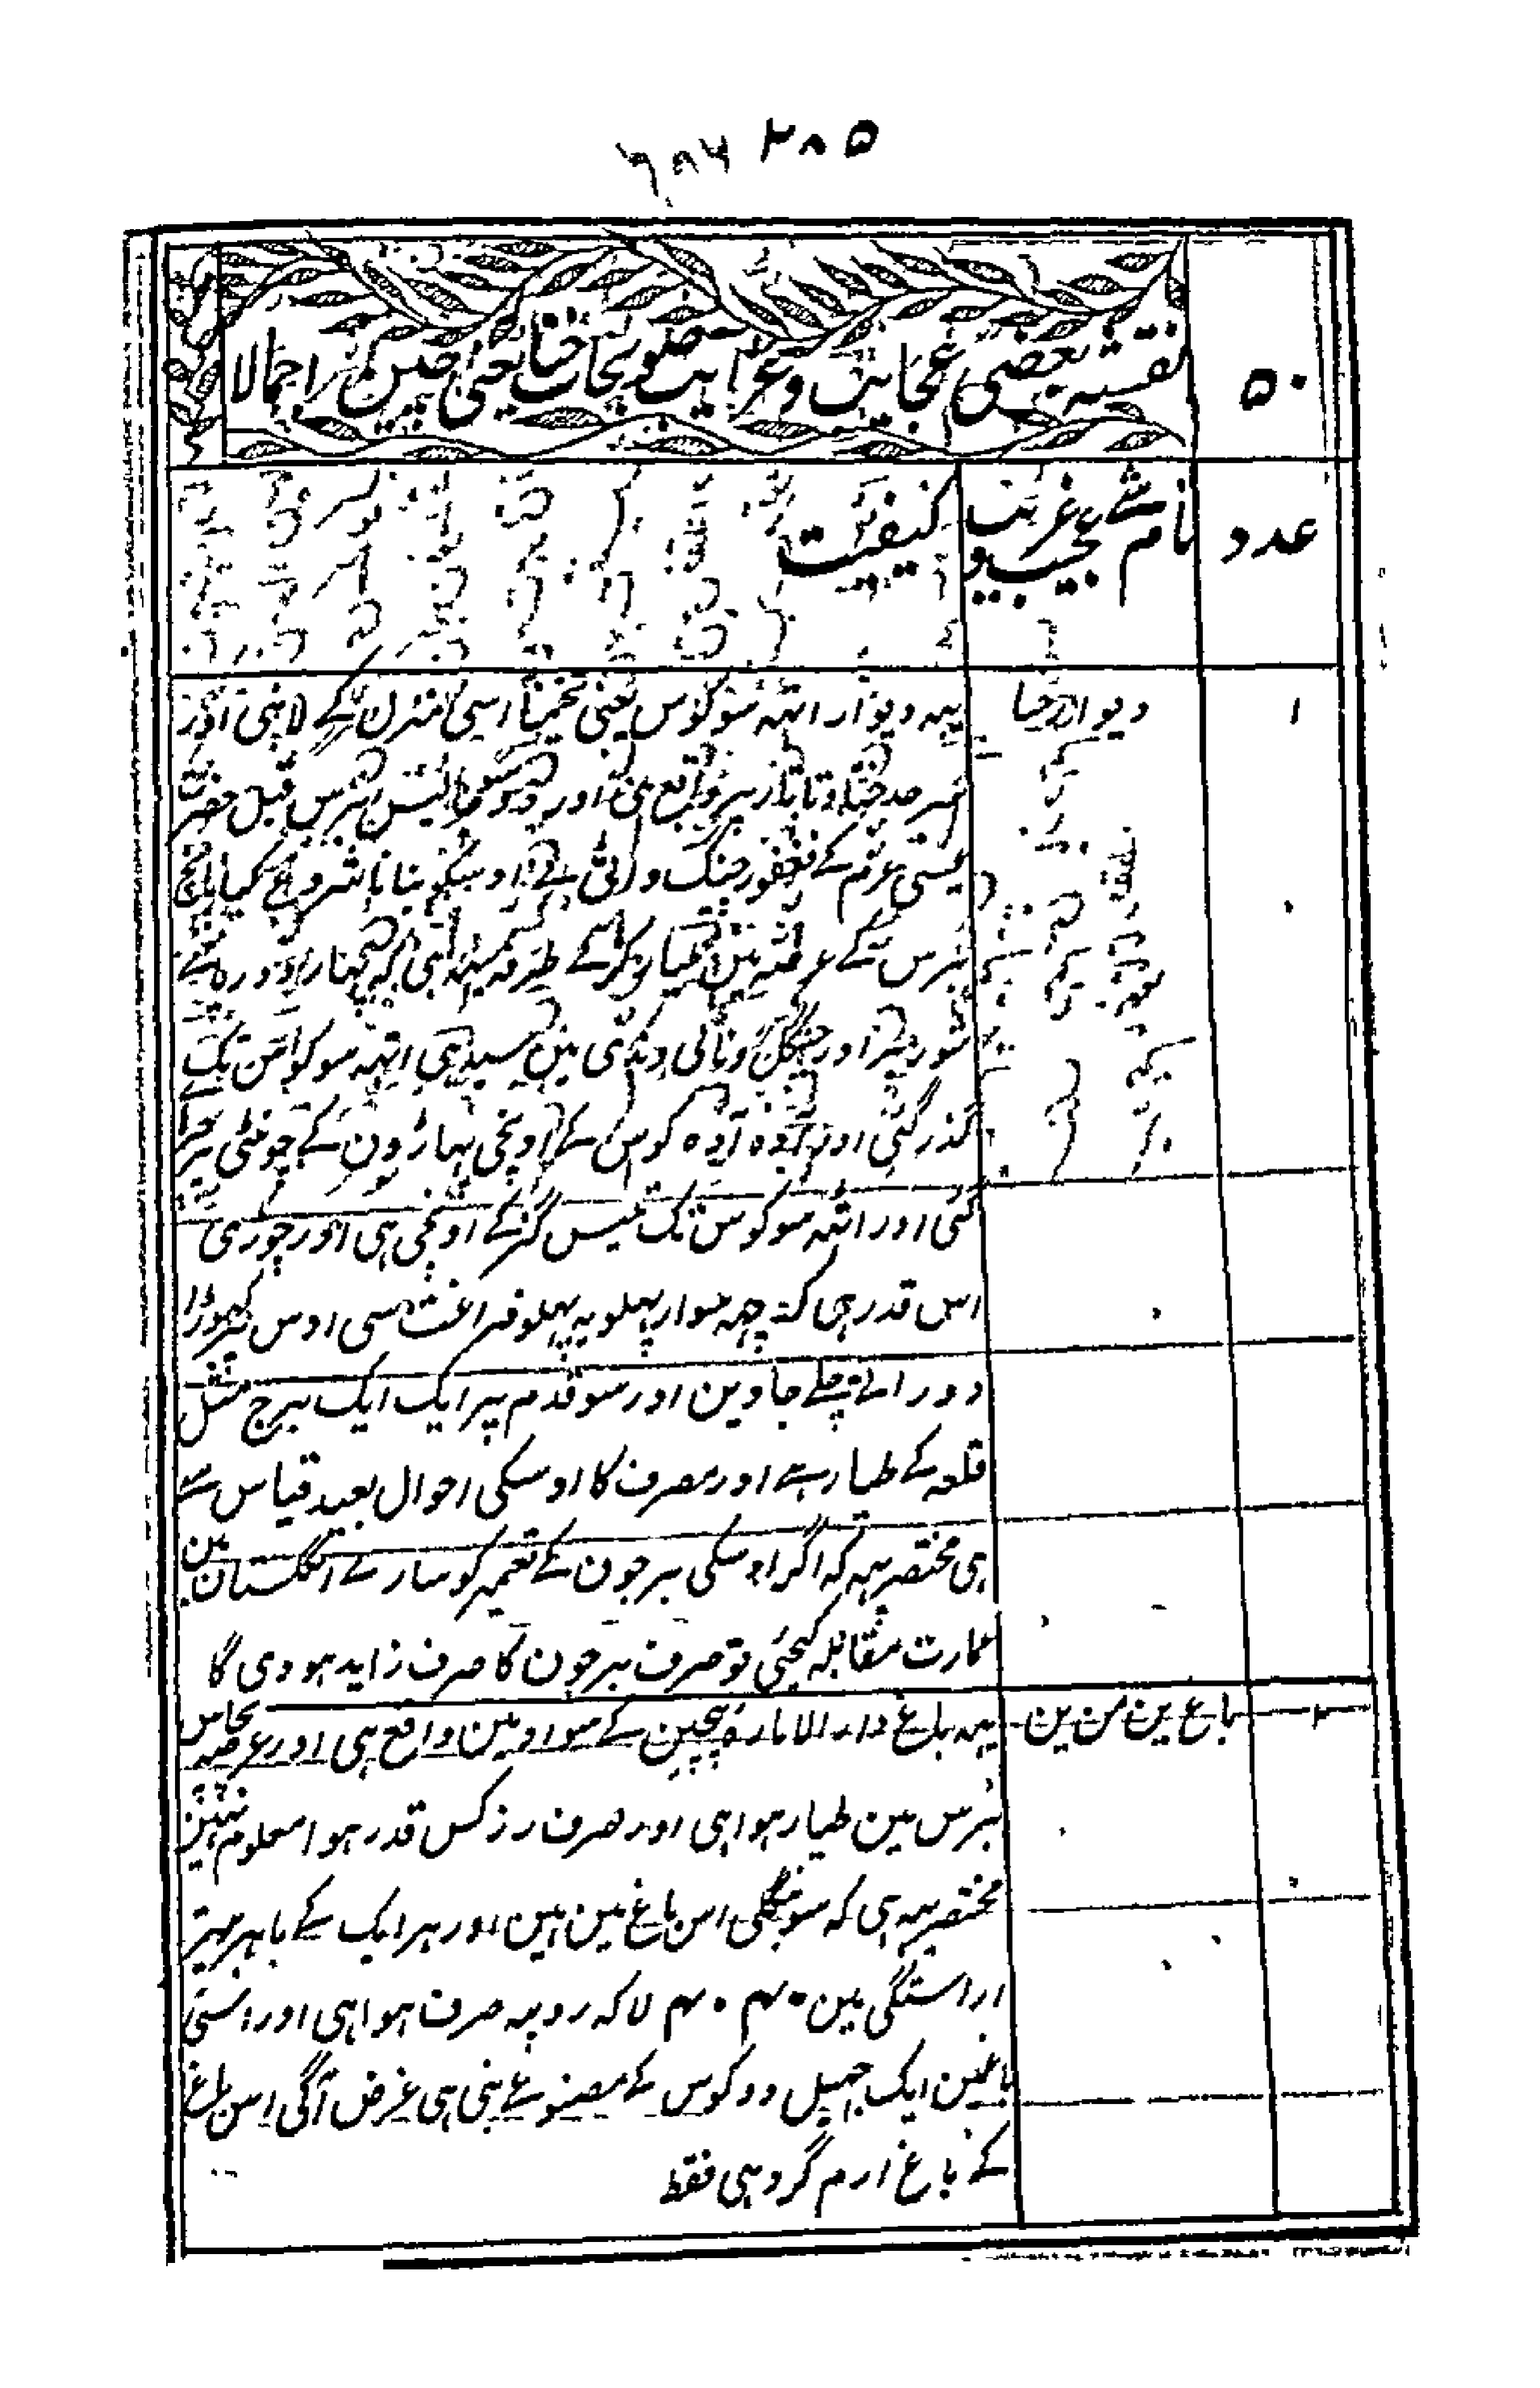 ۲۸۵ ۷۸۶
۵۰
نقشہ بعضی عجایب و غرایب صوبجات ختا یعنی چین کے اجمالا
عدد
نام شے عجیب و غریب
کیفیت
۱
دیوار ختا
یہہ دیوار اٹہہ سو کوس یعنی تخمیناً اسی منزل کے لانبی اور
سرحد ختا و تاتار پر واقع ہی اور دو سو چالیس برس قبل حضرت
عیسی عم کے فغفور جنگ والٹی نے اوسکو بنانا شروع کیا پانچ
برس کے عرصہ مین طیار کر کے طرفہ یہہ ہی کہ پہاڑ اور درہ
شور اور جنگل و نالی و ندی مین سیدہی اٹہہ سو کوس تک
گذر گئی اور آدہ آدہ کوس کے اونچی پہاڑون کے چوٹی پر
گئی اور اٹہہ سو کوس تک تیس گز کے اونچی ہی اور چوڑی
اس قدر ہی کہ چہہ سوار پہلو بہ پہلو فراغت سی اوس پر گہوڑا
دوراتے چلے جاوین اور سو قدم پر ایک ایک برج مثل
قلعہ کے طیار ہے اور مصرف کا اوسکی احوال بعید قیاس سے
ہی مختصر یہہ کہ اگر اوسکی برجون کے تعمیر کو سارے انگلستان مین
عمارت مقابلہ کیجئی تو صرف برجون کا صرف زاید ہووی گا
۲
باغ ین من ین
یہہ باغ دار الامارۃ پیچین کے سواد مین واقع ہی اور عرصہ پچاس
برس مین طیار ہوا ہی اور صرف زر کس قدر ہوا معلوم نہین
مختصر یہہ ہی کہ سو بنگلی اس باغ مین ہین اور ہر ایک کے باہر بہتر
اراستگی مین ۴۰ ۴۰ لاکہ روپیہ صرف ہوا ہی اور اسی
باغمین ایک جہیل دو کوس کے مصنوعے بنی ہی غرض آگی اس باغ
کے باغ ارم گرد ہی فقط